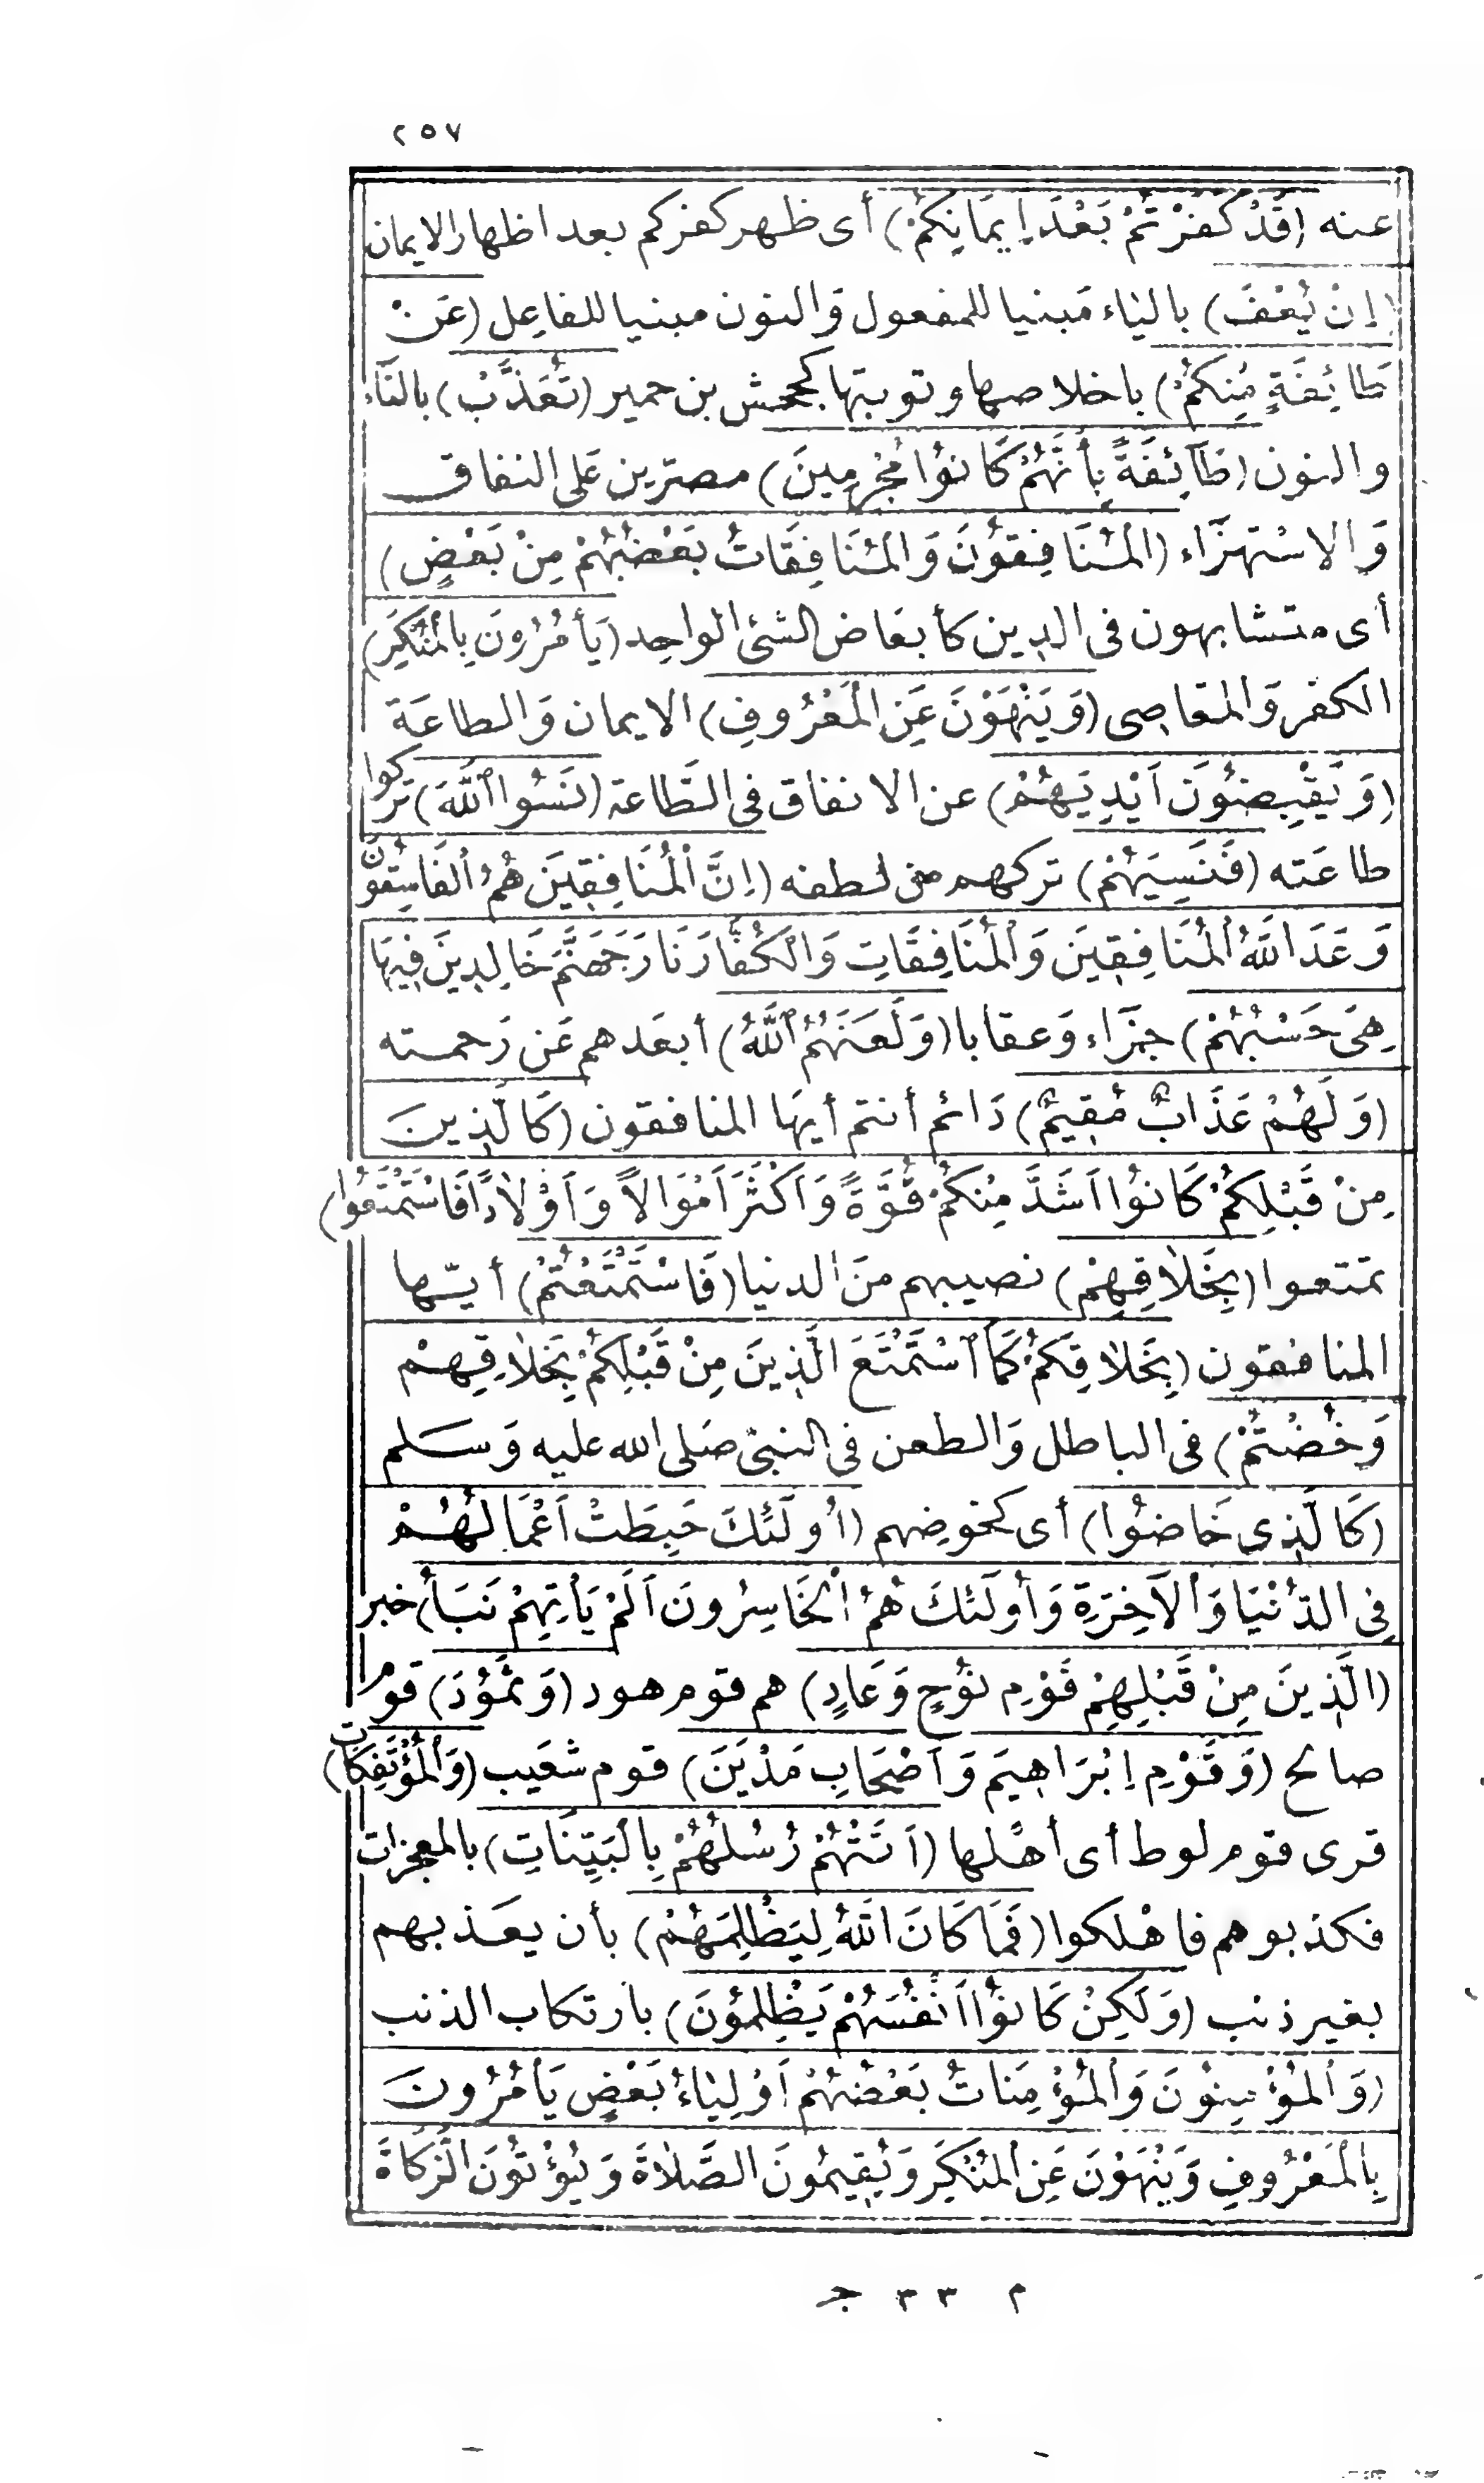 ٢٥٧
عنه (قَدْ كَفَرْتُمْ بَعْدَ إِيمَانِكُمْ) أى ظهر كفركم بعد اظهار الايمان
(إِنْ يُعْفَ) بالياء مَبنيا للمفعول وَالنون مبنيا للفاعِل (عَنْ
طَائِفَةٍ مِنْكُمْ) باخلاصها وتوبتها كجحش بن حمير (تُعَذَّبْ) بالتَّاء
والنون (طَآئِفَةً بِأَنَّهُمْ كَانُوْا مُجْرِمِينَ) مصرّين عَلى النفاق
وَالاسْتهزَاء (الْمُنَافِقُوْنَ وَالْمُنَافِقَاتُ بَعْضُهُمْ مِنْ بَعْضٍ)
أى متشابهون فى الدين كأبعاض الشئ الواحِد (يَأمُرُونَ بِالْمُنْكَرِ)
الكفر وَالمَعَاصِى (وَيَنْهَوْنَ عَنِ الْمَعْرُوفِ) الايمان وَالطاعَة
(وَيَقْبِضُوْنَ اَيْدِيَهُمْ) عن الانفاق فى الطَّاعة (نَسُوا اللَّهَ) تَركوا
طاعَته (فَنَسِيَهُمْ) تركهم من لطفه (اِنَّ الْمُنَافِقِيَن هُمُ الْفَاسِقُوْنَ
وَعَدَ اللَّهُ الْمُنَافِقِيَن وَالْمُنَافِقَاتِ وَالْكُفَّارَ نَارَ جَهَنَّمَ خَالِدِينَ فِيهَا
هِىَ حَسْبُهُمْ) جزَاء وَعقابا (وَلَعَنَهُمُ اللَّهُ) أبعَدهم عَن رَحمته
(وَلَهُمْ عَذَابٌ مُقِيمٌ) دَائم أنتم أيهَا المنافقون (كَالَّذِينَ
مِنْ قَبْلِكُمْ كَانُوْا اَشَدَّ مِنْكُمْ قُوَّةً وَاَكْثَرَ اَمْوَالاً وَاَوْلاَدًا فَاسْتَمْتَعُوْا)
تمتعوا (بِخَلاَقِهِمْ) نصيبهم منَ الدنيا (فَاسْتَمْتَعْتُمْ) أيّها
المنافقون (بِخَلاَقِكُمْ كَمَا اسْتَمْتَعَ الَّذِينَ مِنْ قَبْلِكُمْ بِخَلاَقِهِمْ
وَخُضْتُمْ) فى الباطل وَالطعن فى النبىّ صَلى الله عليه وَسَلم
(كَالَّذِى خَاضُوْا) أى كخوضِهم (اُولَئِكَ حَبِطَتْ اَعْمَالُهُمْ
فِى الدُّنْيَا وَالْآخِرَةِ وَأُولَئِكَ هُمُ الْخَاسِرُونَ اَلَمْ يَأتِهِمْ نَبَأُ) خبر
(الَّذِينَ مِنْ قَبْلِهِمْ قَوْمِ نُوْحٍ وَعَادٍ) هم قوم هود (وَثَمُوْدَ) قوْم
صالح (وَقَوْمِ اِبْرَاهِيَم وَاَصْحَابِ مَدْيَنَ) قوم شعَيب (وَالْمُؤْتَفِكَاتِ)
قرى قوم لوط أى أهْلها (اَتَتْهُمْ رُسُلُهُمْ بِالْبَيِّنَاتِ) بالمعجزات
فكذبوهم فاهْلكوا (فَمَا كَانَ اللَّهُ لِيَظْلِمَهُمْ) بأن يعَذبهم
بغير ذنب (وَلَكِنْ كَانُوْا اَنْفُسَهُمْ يَظْلِمُوْنَ) بارتكاب الذنب
(وَالْمُؤْمِنُوْنَ وَالْمُؤْمِنَاتُ بَعْضُهُمْ اَوْلِيَاءُ بَعْضٍ يَأمُرُونَ
بِالْمَعْرُوفِ وَيَنْهَوْنَ عَنِ الْمُنْكَرِ وَيُقِيمُونَ الصَّلاَةَ وَيُؤْتُوْنَ الزَّكَاةَ
م ٣٣ جـ